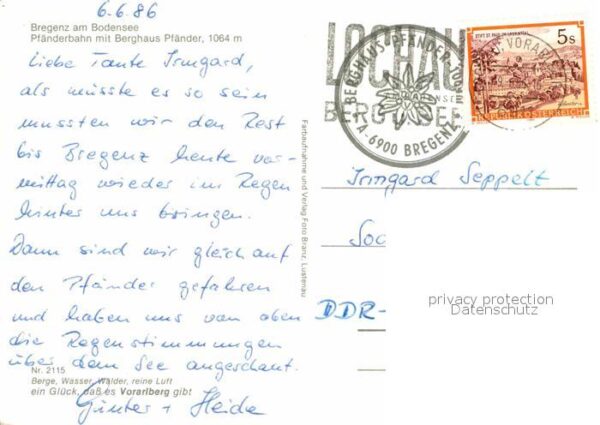 6.6.86
Bregenz am Bodensee
Pfänderbahn mit Berghaus Pfänder, 1064 m
Liebe Tante Irmgard,
als müsste es so sein
mussten wir den Rest
bis Bregenz heute vor-
mittag wieder im Regen
hinter uns bringen.
Dann sind wir gleich auf
den Pfänder gefahren
und haben uns von oben
die Regenstimmungen
über dem See angeschaut.
Nr. 2115
Berge, Wasser, Wälder, reine Luft
ein Glück, daß es Vorarlberg gibt
Günter + Heide
Farbaufnahme und Verlag Foto Branz, Lustenau
LOCHAU
BERGHAUS PFÄNDER
A-6900 BREGENZ
STIFT ST. PAUL IM LAVANTTAL
5s
REPUBLIK ÖSTERREICH
Irmgard Seppelt
Soc
DDR-
privacy protection
Datenschutz